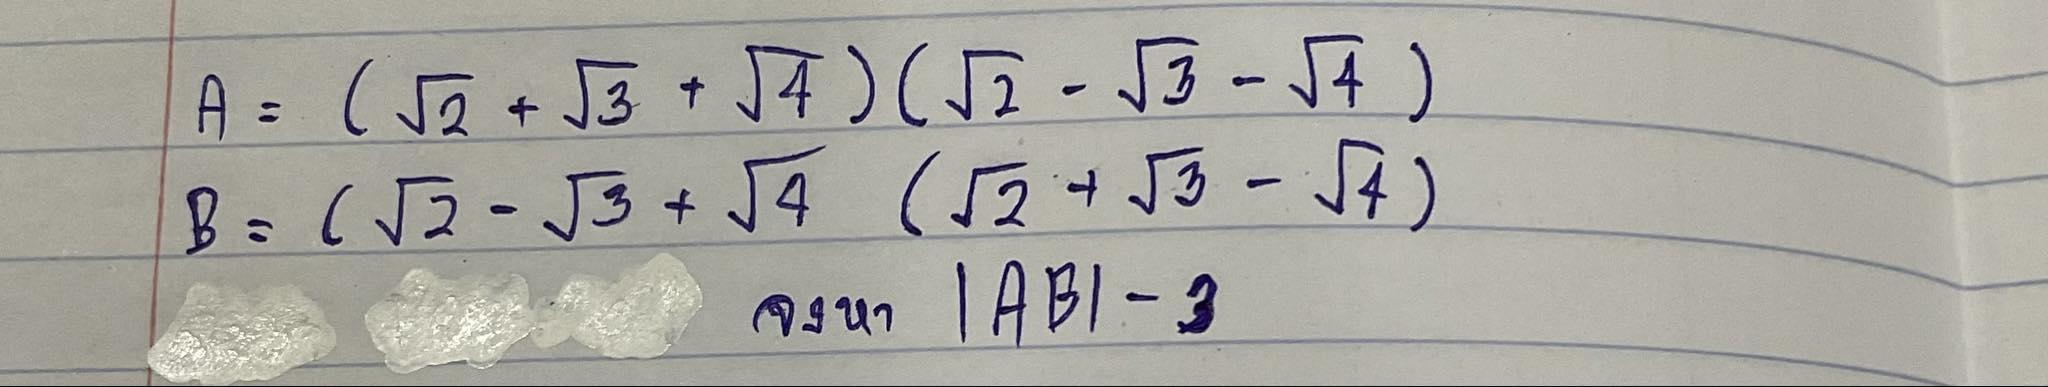 A = (√2 + √3 + √4)(√2 - √3 - √4)
B = (√2 - √3 + √4 (√2 + √3 - √4)
จงหา |AB| - 3